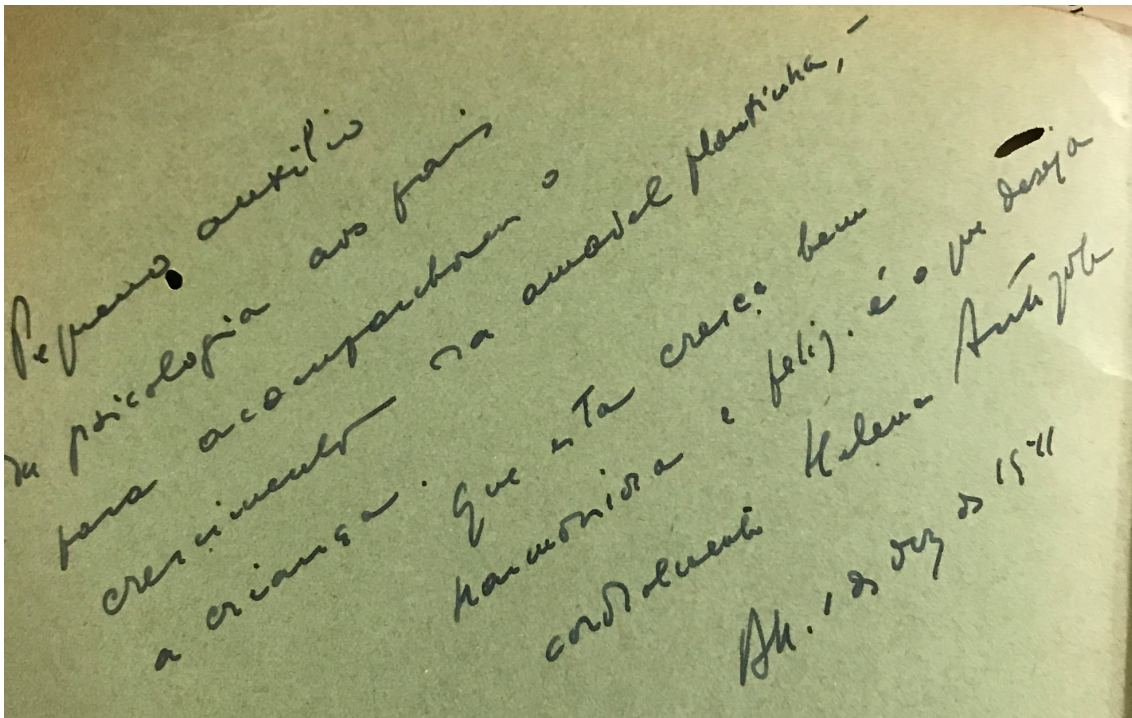 Pequeno auxílio
da psicologia aos pais
para acompanharem o
crescimento da amavel plantinha, –
a criança. Que esta cresça bem
harmoniosa e feliz. é o que deseja
cordialmente Helena Antipoff
BH. 1 de dez de 19